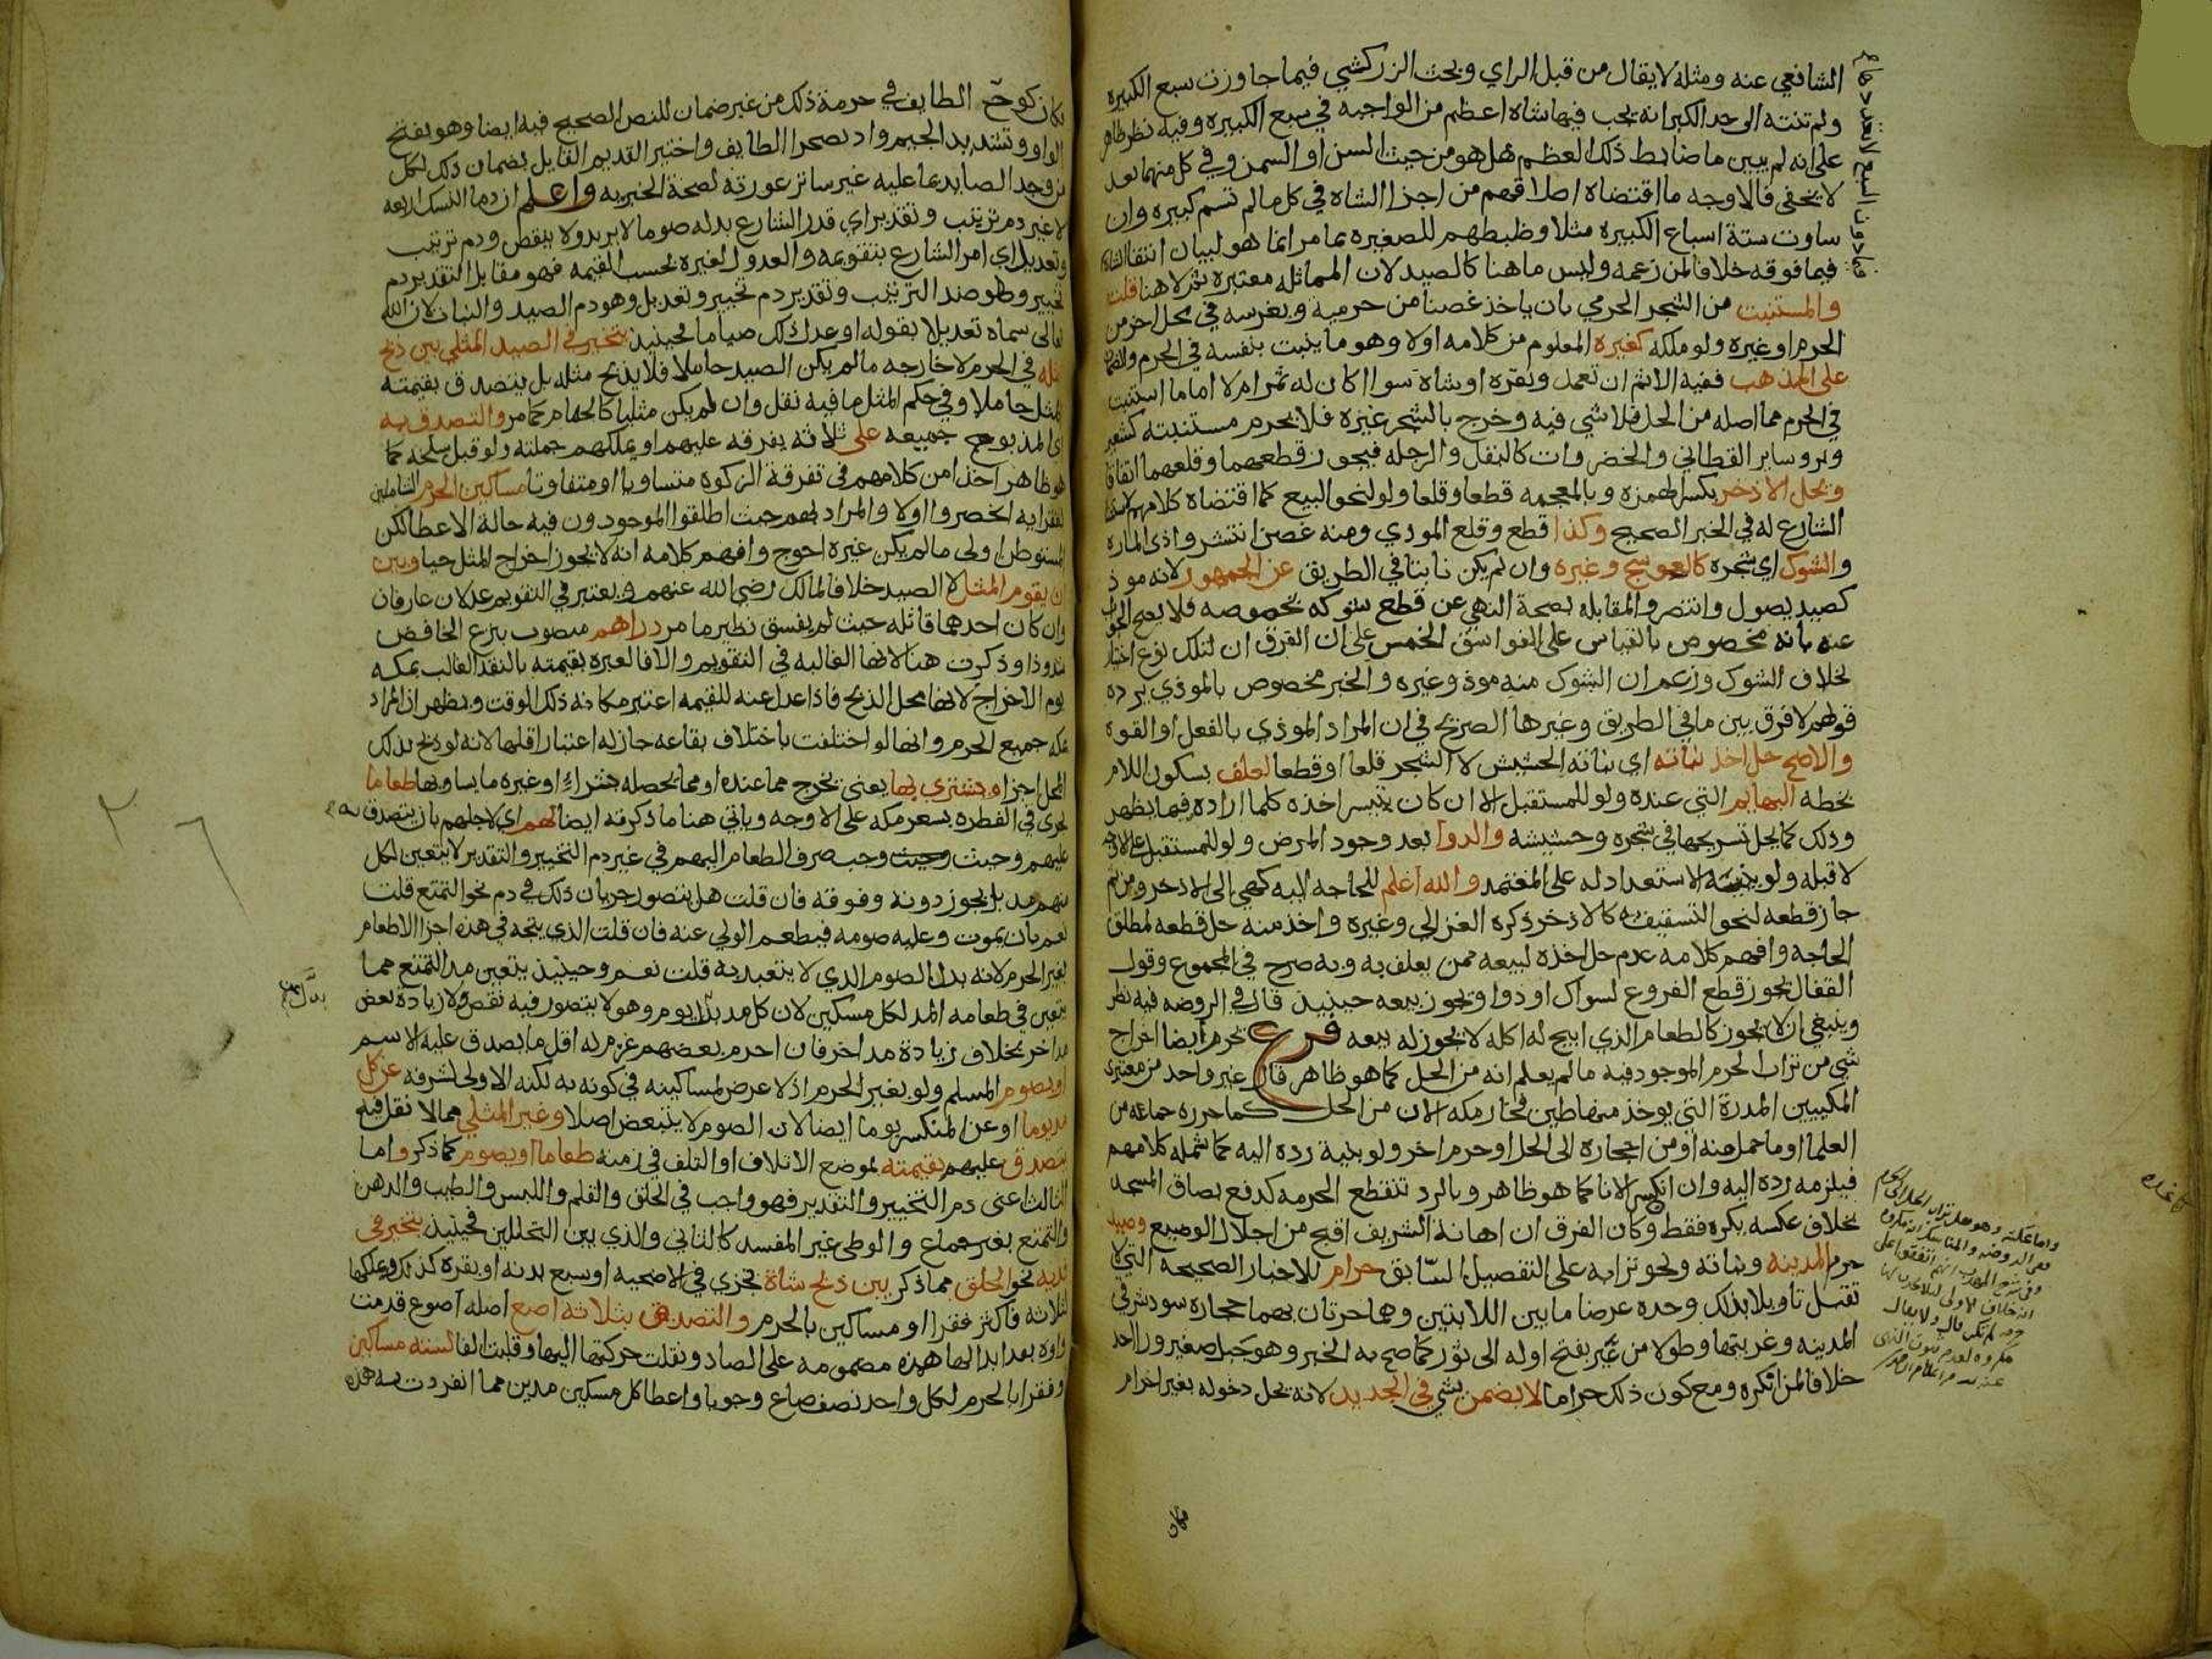 الشافعي عنه ومثله لا يقال من قبل الراي وبحث الزركشي فيما جاوزت سبع الكبيره
ولم تنته الى حد الكبر انه يجب فيها شاه اعظم من الواجبه في سبع الكبيره وفيه نظر ظاهر
على انه لم يبين ما ضابط ذلك العظم هل هو من حيث السن او السمن وفي كل منهما بعد
لا يخفى فالاوجه ما اقتضاه اطلاقهم من اجزا الشاه في كل ما لم تسم كبيره وان
ساوت ستة اسباع الكبيره مثلا وضبطهم للصغيره بما مر انما هو لبيان انتفا الشاه
فيما فوقه خلافا لمن زعمه وليس ما هنا كالصيد لان المماثله معتبره ثم لا هنا قلت
والمستنبت من الشجر الحرمي بان ياخذ غصنا من حرمية ويغرسه في محل اخر من
الحرم او غيره ولو ملكه كغيره المعلوم من كلامه اولا وهو ما ينبت بنفسه في الحرم والضمان
على المذهب ففيه الاثم ان تعمد وبقره او شاه سوا اكان له ثمر ام لا اما ما استنبت
في الحرم مما اصله من الحل فلا شي فيه وخرج بالشجر غيره فلا يحرم مستنبته كشعير
وبر وساير القطاني والخضروات كالبقل والرجله فيجوز قطعهما وقلعهما اتفاقا
ويحل الاذخر بكسر الهمزه وبالمعجمه قطعا وقلعا ولو لنحو البيع كما اقتضاه كلامهم لاستثنا
الشارع له في الخبر الصحيح وكذا قطع وقلع الموذي ومنه غصن انتشر واذى الماره
والشوك اي شجره كالعوسج وغيره وان لم يكن نابتا في الطريق عن الجمهور لانه موذ
كصيد يصول وانتصر والمقابله بصحة النهي عن قطع شوكه بخصوصه فلا يصح الجواب
عنه بانه مخصوص بالقياس على الفواسق الخمس على ان الفرق ان لتلك نوع اختيار
بخلاف الشوك وزعم ان الشوك منه موذ وغيره والخبر مخصوص بالموذي يرده
قولهم لا فرق بين ما في الطريق وغيرها الصريح في ان المراد الموذي بالفعل او القوه
والاصح حل اخذ نباته اي نباته الحشيش لا الشجر قلعا او قطعا لعلف بسكون اللام
بخطه البهايم التي عنده ولو للمستقبل الا ان كان يتيسر اخذه كلما اراده فيما يظهر
وذلك كما يحل تسريحها في شجره وحشيشه والدوا بعد وجود المرض ولو للمستقبل على الاوجه
لا قبله ولو بنية الاستعداد له على المعتمد والله اعلم للحاجه اليه كهي الى الاذخر ومن ثم
جاز قطعه لنحو التسقيف به كالاذخر ذكره الغزالي وغيره واخذ منه حل قطعه لمطلق
الحاجه وافهم كلامه عدم حل اخذه لبيعه ممن يعلف به وبه صرح في المجموع وقول
القفال يجوز قطع الفروع لسواك او دوا ويجوز بيعه حينيذ قال في الروضه فيه نظر
وينبغي ان لا يجوز كالطعام الذي ابيح له اكله لا يجوز له بيعه فرع يحرم ايضا اخراج
شي من تراب الحرم الموجود فيه ما لم يعلم انه من الحل كما هو ظاهر قال غير واحد من معتبري
المكيين المدرة التي يوخذ منها طين فخار مكه الان من الحل كما حرره جماعه من
العلما او ما حمل منه او من احجاره الى الحل او حرم اخر ولو بنية رده اليه كما شمله كلامهم
فيلزمه رده اليه وان انكسر الانا كما هو ظاهر وبالرد تنقطع الحرمه كدفع بصاق المسجد
بخلاف عكسه يكره فقط وكان الفرق ان اهانة الشريف اقبح من اجلال الوضيع وصيد
حرم المدينه ونباته ونحو ترابه على التفصيل السابق حرام للاخبار الصحيحه التي لا
تقبل تاويلا بذلك وحده عرضا ما بين اللابتين وهما حرتان بهما حجاره سود شرقي
المدينه وغربيتها وطولا من عير بفتح اوله الى ثور كما صح به الخبر وهو جبل صغير ورا احد
خلافا لمن انكره ومع كون ذلك حراما لا يضمن بشي في الجديد لانه يحل دخوله بغير احرام
فكان
كان كوج الطايف في حرمة ذلك من غير ضمان للنص الصحيح فيه ايضا وهو بفتح
الواو وتشديد الجيم واد بصحرا الطايف واختير القديم القايل بضمان ذلك لكل
من وجد الصايد بما عليه غير ساتر عورته لصحة الخبر به واعلم ان دما النسك اربعه
لا غير دم ترتيب وتقدير اي قدر الشارع بدله صوما لا يزيد ولا ينقص ودم ترتيب
وتعديل اي امر الشارع بتقويمه والعدول لغيره بحسب القيمه فهو مقابل التقدير دم
تخيير وهو ضد الترتيب وتقدير دم تخيير وتعديل وهو دم الصيد والنبات لان الله
تعالى سماه تعديلا بقوله او عدل ذلك صياما فحينيذ يتخير في الصيد المثلي بين ذبح
مثله في الحرم لا خارجه ما لم يكن الصيد حاملا فلا يذبح مثله بل يتصدق بقيمته
المثل حاملا وفي حكم المثل ما فيه نقل وان لم يكن مثليا كالحمام كما مر والتصدق به
اي المذبوح جميعه على ثلاثه يفرقه عليهم او يملكهم جملته ولو قبل سلخه كما
هو ظاهر اخذا من كلامهم في تفرقة الزكوه متساويا او متفاوتا مساكين الحرم الشاملين
لفقرايه انحصروا اولا والمراد بهم حيث اطلقوا الموجودون فيه حالة الاعطا لكن
المستوطن اولى ما لم يكن غيره احوج وافهم كلامه انه لا يجوز اخراج المثل حيا وبين
ان يقوم المثل لا الصيد خلافا لمالك رضي الله عنهم ويعتبر في التقويم عدلان عارفان
وان كان احدهما قاتله حيث لم يفسق نظير ما مر دراهم منصوب بنزع الخافض
شذوذا وذكرت هنا لانها الغالبه في التقويم والا فالعبره بقيمته بالنقد الغالب بمكه
يوم الاخراج لانها محل الذبح فاذا عدل عنه للقيمه اعتبر مكانه ذلك الوقت ويظهر ان المراد
بمكه جميع الحرم وانها لو اختلفت باختلاف بقاعه جاز له اعتبار اقلها لانه لو ذبح بذلك
المحل اجزا ويشتري بها يعني يخرج مما عنده او مما يحصله بشراء او غيره ما يساويها طعاما
يجزي في الفطره بسعر مكه على الاوجه وياتي هنا ما ذكرته ايضا لهم اي لاجلهم بان يتصدق به
عليهم وحيث وجب صرف الطعام اليهم في غير دم التخيير والتقدير لا يتعين لكل
منهم مد بل يجوز دونه وفوقه فان قلت هل يتصور جريان ذلك في دم نحو التمتع قلت
نعم بان يموت وعليه صومه فيطعم الولي عنه فان قلت الذي يتجه في هذه اجزا الاطعام
لغير الحرم لانه بدل الصوم الذي لا يتعبد به قلت نعم وحينيذ يتعين مد التمتع مما
يتعين في طعامه المد لكل مسكين لان كل مد بدل يوم وهو لا يتصور فيه نقص ولا زيادة بعض
مد اخر بخلاف زيادة مد اخر فان احرم بعضهم غرم له اقل ما يصدق عليه الاسم
او يصوم المسلم ولو بغير الحرم اذ لا عرض لمساكينه في كونه به لكنه الاولى لشرفه عن كل
مد يوما او عن المنكسر يوما ايضا لان الصوم لا يتبعض اصلا وغير المثلي مما لا نقل فيه
يتصدق عليهم بقيمته بموضع الاتلاف او التلف في زمنه طعاما او يصوم كما ذكر واما
الثالث اعني دم التخيير والتقدير فهو واجب في الحلق والقلم واللبس والطيب والدهن
والتمتع بغير جماع والوطى غير المفسد كالثاني والذي بين التحللين فحينيذ يتخير في
فديه نحو الحلق مما ذكر بين ذبح شاة تجزي في الاضحيه او سبع بدنه او بقره كذلك ويملكها
لثلاثه فاكثر فقرا او مساكين بالحرم والتصدق بثلاثه اصع اصله اصوع قدمت
واوه بعد ابدالها همزه مضمومه على الصاد ونقلت حركتها اليها وقلبت الفا لسته مساكين
وفقرا بالحرم لكل واحد نصف صاع وجوبا واعطا كل مسكين مدين مما انفردت به هذه